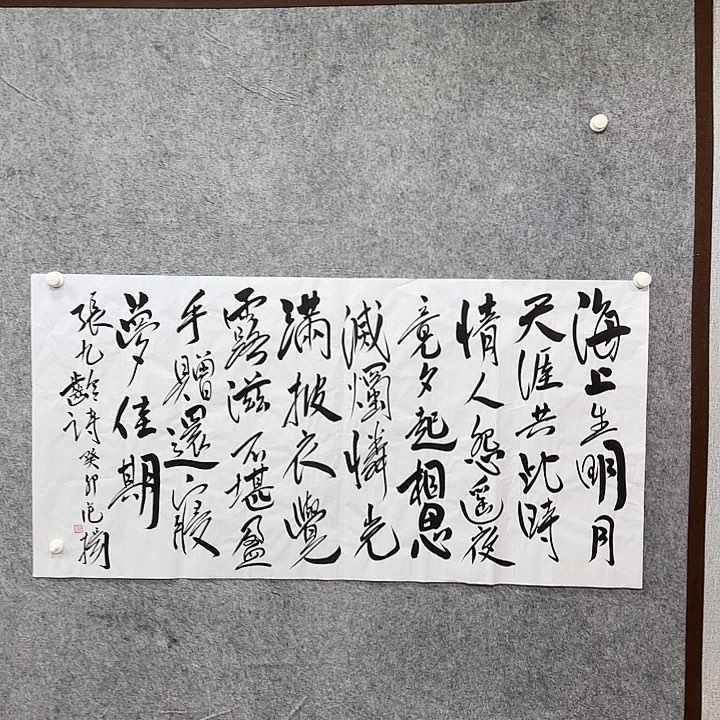 海上生明月
天涯共此時
情人怨遥夜
竟夕起相思
滅燭憐光
滿披衣覺
露滋不堪盈
手贈還寢
夢佳期
張九齡詩癸卯